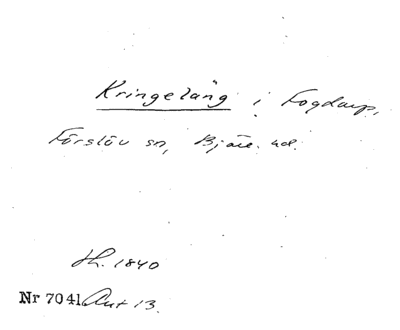 Kringeläng i Fogdarp,
Förslöv sn, Bjäre hd.
H. 1840
Nr 7041 Ant 13.